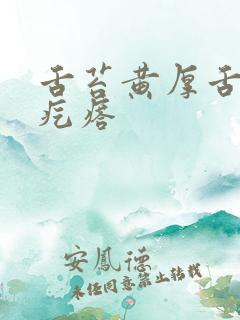 舌苔黄厚舌
疙瘩
安鳳德
未经同意禁止转载